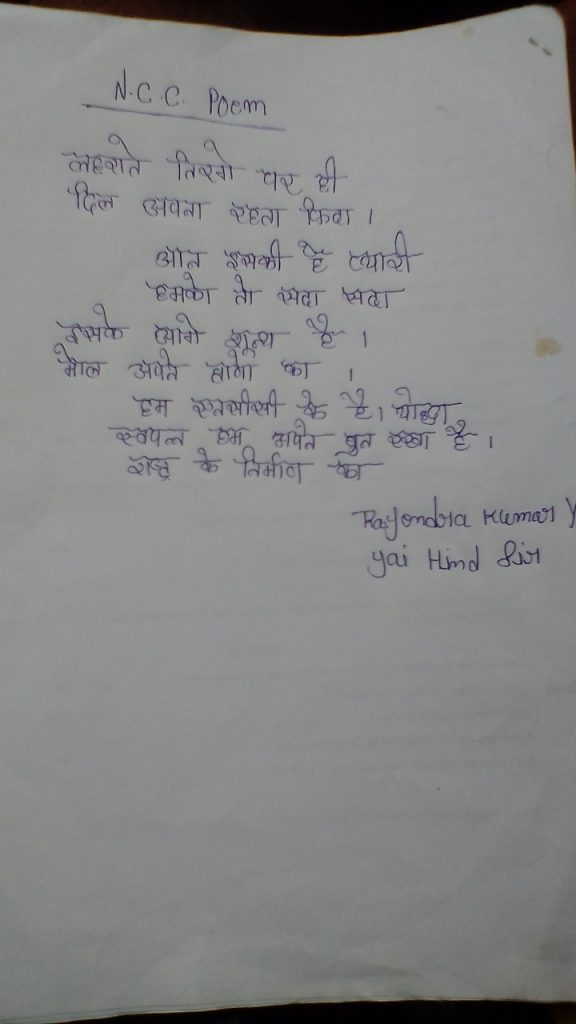 N.C.C. Poem
लहराते तिरंगे पर ही
दिल अपना रहता फिदा ।
आन इसकी है प्यारी
हमको तो सदा सदा
इसके आगे शून्य है ।
मोल अपने प्राणों का ।
हम एनसीसी के है। योद्धा
स्वपन हम अपने बुन रखा है ।
राष्ट्र के निर्माण का
Rajendra Kumar Y
Jai Hind Sir